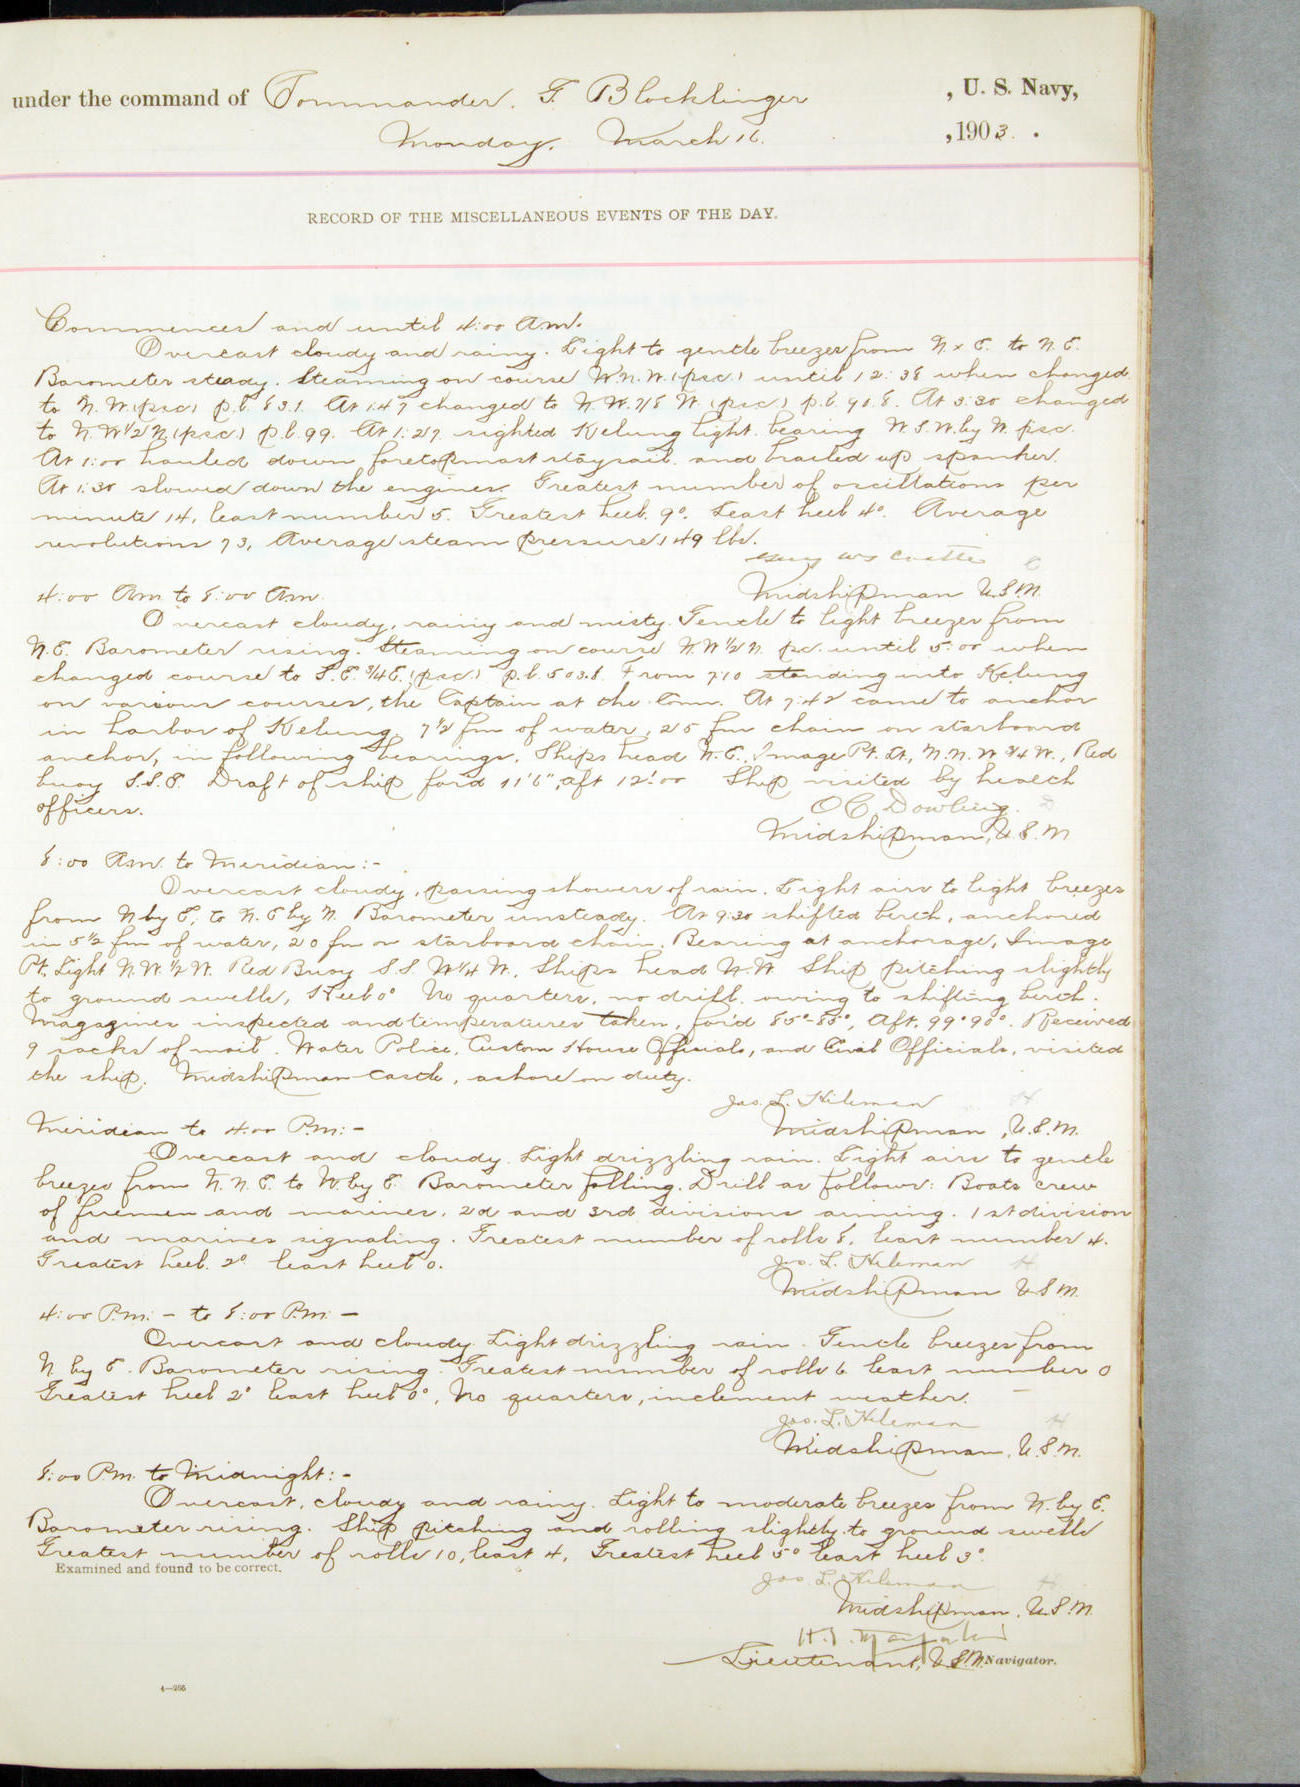 under the command of Commander. G. Blocklinger , U. S. Navy,
Monday. March 16. ,1903.
RECORD OF THE MISCELLANEOUS EVENTS OF THE DAY.
Commences and until 4:00 Am.
Overcast cloudy and rainy. Light to gentle breezes from N. x E. to N.E.
Barometer steady. Steaming on course W.N.W. (psc.) until 12:38 when changed
to N.W. (psc) p.l. 83.1. At 1:47 changed to N.W. 7/8 W (psc) p.l. 90.8. At 3:30 changed
to N.W 1/2 N (psc.) p.l. 99. At 1:27 sighted Kelung light bearing W.S.W. by W. psc.
At 1:00 hauled down foretopmast staysail and brailed up spanker.
At 1:30 slowed down the engines. Greatest number of oscillations per
minute 14, least number 5. Greatest heel 9°. Least heel 4°. Average
revolutions 73, Average steam pressure 149 lbs.
Guy W S Castle
Midshipman U.S.N.
4:00 Am. to 8:00 Am.
Overcast cloudy, rainy and misty. Gentle to light breezes from
N.E. Barometer rising. Steaming on course N.W 1/2 N. psc. until 5:00 when
changed course to S.E. 3/4 E. (psc.) p.l. 503.8. From 7:10 standing into Kelung
on various courses, the Captain at the Conn. At 7:42 came to anchor
in harbor of Kelung, 7 1/2 fm of water, 25 fm chain on starboard
anchor, in following bearings. Ships head N.E., Image Pt. Lt., N.N.W 3/4 W., Red
buoy S.S.E. Draft of ship for'd 11'6", aft 12'.00 Ship visited by health
officers.
O C Dowling. D
Midshipman, U.S.N
8:00 Am. to Meridian:-
Overcast cloudy, passing showers of rain. Light airs to light breezes
from N by E, to N.E by N. Barometer unsteady. At 9:30 shifted berth, anchored
in 5 1/2 fm of water, 20 fm on starboard chain. Bearing at anchorage, Image
Pt. Light N.W. 1/2 W. Red Buoy S.S. W 1/4 W. Ships head N.W. Ship pitching slightly
to ground swells, Heel 0° No quarters, no drill, owing to shifting berth.
Magazines inspected and temperatures taken, for'd 85°-85°, Aft. 99° 90°. Received
9 sacks of mail. Water Police, Custom House Officials, and Civil Officials, visited
the ship. Midshipman Castle, ashore on duty.
Jas. L. Hileman H
Midshipman, U.S.N.
Meridian to 4:00 P.M:-
Overcast and cloudy. Light drizzling rain. Light airs to gentle
breezes from N.N.E. to N. by E. Barometer falling. Drill as follows: Boats crew
of firemen and marines. 2d and 3rd divisions aiming. 1st division
and marines signaling. Greatest number of rolls 8, least number 4.
Greatest heel 2° least heel 0.
Jas. L. Hileman H
Midshipman U.S.N.
4:00 P.m:- to 8:00 P.m:-
Overcast and cloudy. Light drizzling rain. Gentle breezes from
N. by E. Barometer rising. Greatest number of rolls 6 least number 0
Greatest heel 2° least heel 0°, No quarters, inclement weather.
Jas. L. Hileman H
Midshipman, U.S.N.
8:00 P.m. to Midnight:-
Overcast, cloudy and rainy. Light to moderate breezes from N. by E.
Barometer rising. Ship pitching and rolling slightly to ground swells
Greatest number of rolls 10, least 4, Greatest heel 5° least heel 3°.
Examined and found to be correct.
Jas. L. Hileman H
Midshipman, U.S.N.
Lieutenant, U.S.N. Navigator.